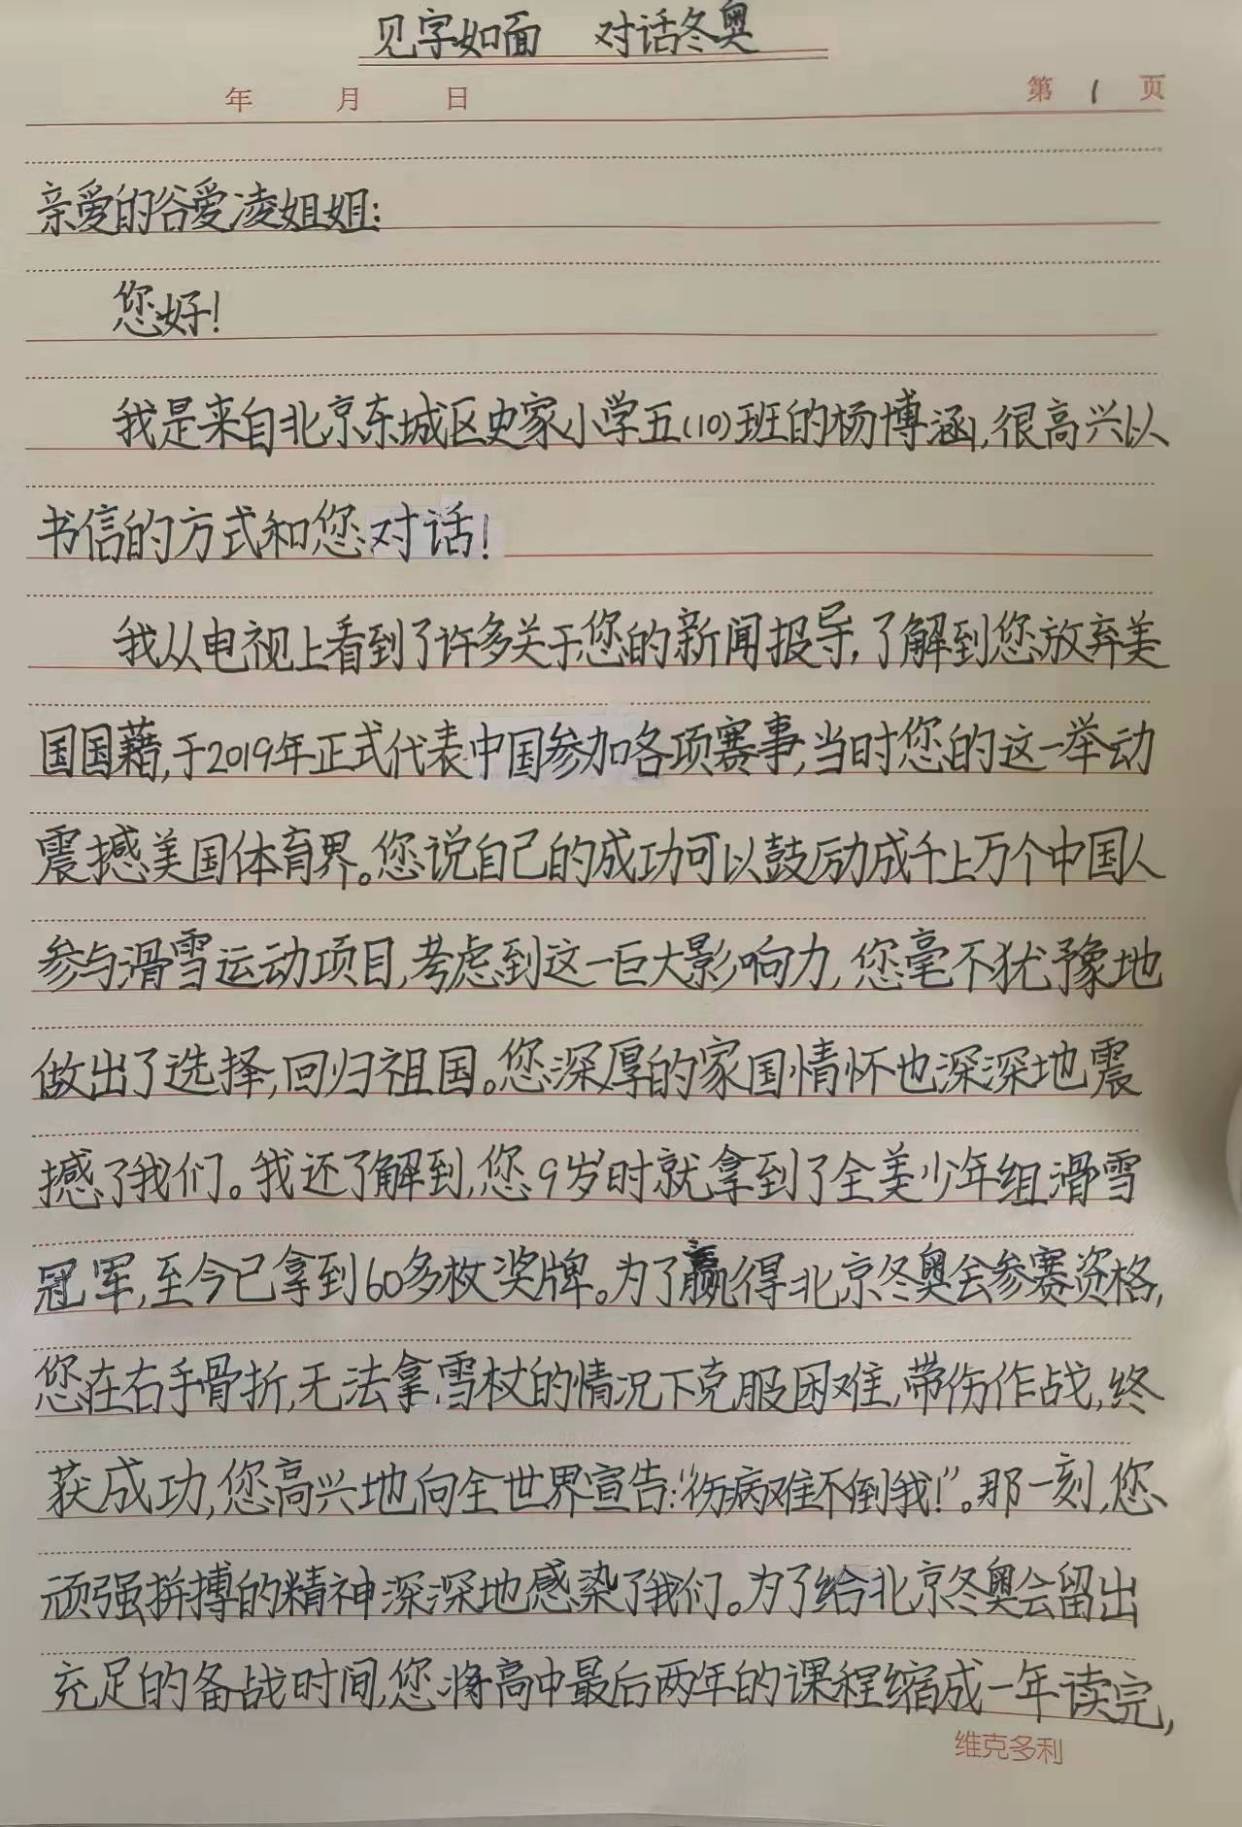 见字如面 对话冬奥
年 月 日 第 1 页
亲爱的谷爱凌姐姐:
您好!
我是来自北京东城区史家小学五(10)班的杨博涵,很高兴以
书信的方式和您对话!
我从电视上看到了许多关于您的新闻报导,了解到您放弃美
国国藉,于2019年正式代表中国参加各项赛事,当时您的这一举动
震撼美国体育界。您说自己的成功可以鼓励成千上万个中国人
参与滑雪运动项目,考虑到这一巨大影响力,您毫不犹豫地
做出了选择,回归祖国。您深厚的家国情怀也深深地震
撼了我们。我还了解到,您9岁时就拿到了全美少年组滑雪
冠军,至今已拿到60多枚奖牌。为了赢得北京冬奥会参赛资格,
您在右手骨折,无法拿雪杖的情况下克服困难,带伤作战,终
获成功,您高兴地向全世界宣告:“伤病难不倒我!”。那一刻,您
顽强拼搏的精神深深地感染了我们。为了给北京冬奥会留出
充足的备战时间,您将高中最后两年的课程缩成一年读完,
维克多利